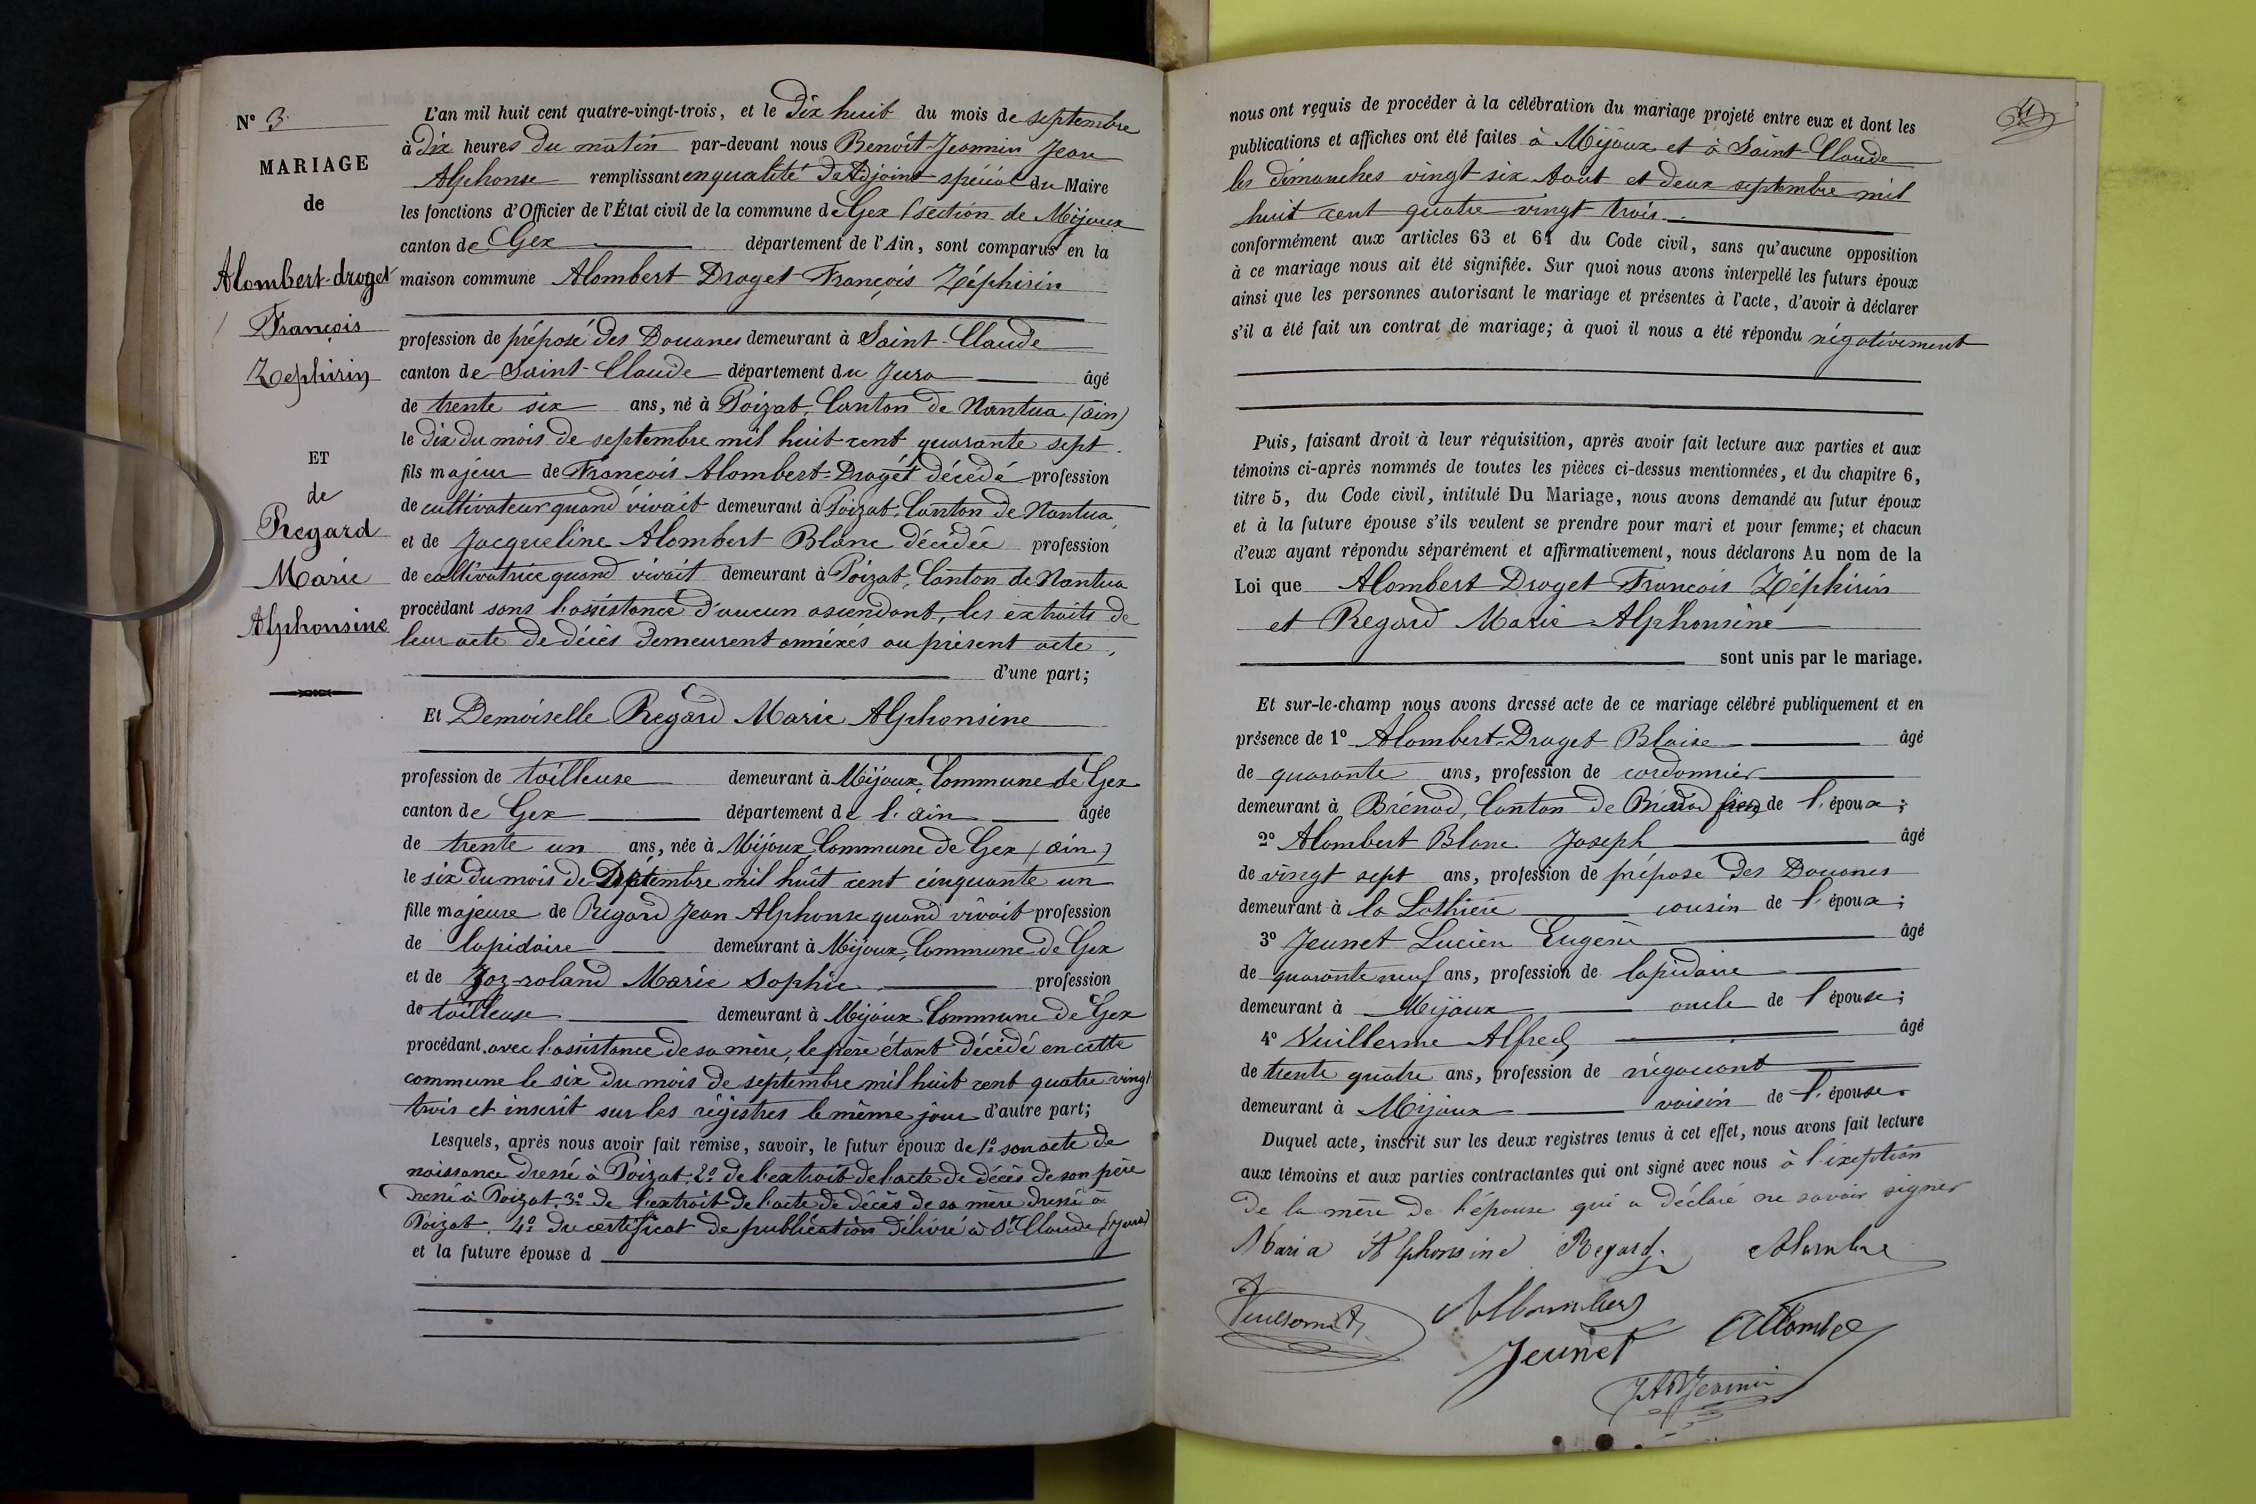 N° 3
MARIAGE
de
Alombert-droget
François
Zephirin
ET
de
Regard
Marie
Alphonsine
L'an mil huit cent quatre-vingt-trois, et le Dix huit du mois de septembre
à dix heures du matin par-devant nous Benoît-Jeannin Jean
Alphonse remplissant en qualité d'Adjoint spécial du Maire
les fonctions d'Officier de l'État civil de la commune de Gex (section de Mijoux
canton de Gex département de l'Ain, sont comparus en la
maison commune Alombert Droget François Zéphirin
profession de préposé des Douanes demeurant à Saint-Claude
canton de Saint-Claude département du Jura âgé
de trente six ans, né à Poizat, Canton de Nantua (ain)
le dix du mois de septembre mil huit cent quarante sept.
fils majeur de François Alombert-Droget décédé profession
de cultivateur quand vivait demeurant à Poizat, Canton de Nantua,
et de Jacqueline Alombert Blanc décédée profession
de cultivatrice quand vivait demeurant à Poizat, Canton de Nantua
procédant sans l'assistance d'aucun ascendant, les extraits de
leur acte de décès demeurent annéxés au présent acte,
d'une part;
Et Demoiselle Regard Marie Alphonsine
profession de tailleuse demeurant à Mijoux, Commune de Gex
canton de Gex département de l'ain âgée
de trente un ans, née à Mijoux, Commune de Gex (ain)
le six du mois de mil huit cent cinquante un
fille majeure de Regard Jean Alphonse quand vivait profession
de lapidaire demeurant à Mijoux, Commune de Gex
et de Joz-roland Marie Sophie profession
de tailleuse demeurant à Mijoux Commune de Gex
procédant avec l'assistance de sa mère, le père étant décédé en cette
commune le six du mois de septembre mil huit cent quatre vingt
trois et inscrit sur les régistres le même jour d'autre part;
Lesquels, après nous avoir fait remise, savoir, le futur époux de 1° son acte de
naissance dressé à Poizat 2° de l'extrait de l'acte de décès de son père
dressé à Poizat 3° de l'extrait de l'acte de décès de sa mère dressé à
Poizat. 4° du certificat de publication délivré à St Claude (Jura)
et la future épouse d
nous ont requis de procéder à la célébration du mariage projeté entre eux et dont les
publications et affiches ont été faites à Mijoux et à Saint-Claude
les dimanches vingt six Aout et deux septembre mil
huit cent quatre vingt trois.
conformément aux articles 63 et 64 du Code civil, sans qu'aucune opposition
à ce mariage nous ait été signifiée. Sur quoi nous avons interpellé les futurs époux
ainsi que les personnes autorisant le mariage et présentes à l'acte, d'avoir à déclarer
s'il a été fait un contrat de mariage; à quoi il nous a été répondu négativement
Puis, faisant droit à leur réquisition, après avoir fait lecture aux parties et aux
témoins ci-après nommés de toutes les pièces ci-dessus mentionnées, et du chapitre 6,
titre 5, du Code civil, intitulé Du Mariage, nous avons demandé au futur époux
et à la future épouse s'ils veulent se prendre pour mari et pour femme; et chacun
d'eux ayant répondu séparément et affirmativement, nous déclarons Au nom de la
Loi que Alombert Droget François Zéphirin
et Regard Marie Alphonsine
sont unis par le mariage.
Et sur-le-champ nous avons dressé acte de ce mariage célébré publiquement et en
présence de 1° Alombert-Droget Blaise âgé
de quarante ans, profession de cordonnier
demeurant à Brénod, Canton de Brénod frère de l'époux;
2° Alombert Blanc Joseph âgé
de vingt sept ans, profession de préposé des Douanes
demeurant à la cousin de l'époux;
3° Jeunet Lucien Eugène âgé
de quarante neuf ans, profession de lapidaire
demeurant à Mijoux oncle de l'épouse;
4° Vuillerme Alfred âgé
de trente quatre ans, profession de négociant
demeurant à Mijoux voisin de l'épouse.
Duquel acte, inscrit sur les deux registres tenus à cet effet, nous avons fait lecture
aux témoins et aux parties contractantes qui ont signé avec nous à l'exeption
de la mère de l'épouse qui a déclaré ne savoir signer
Maria Alphonsine Regard.
Jeunet